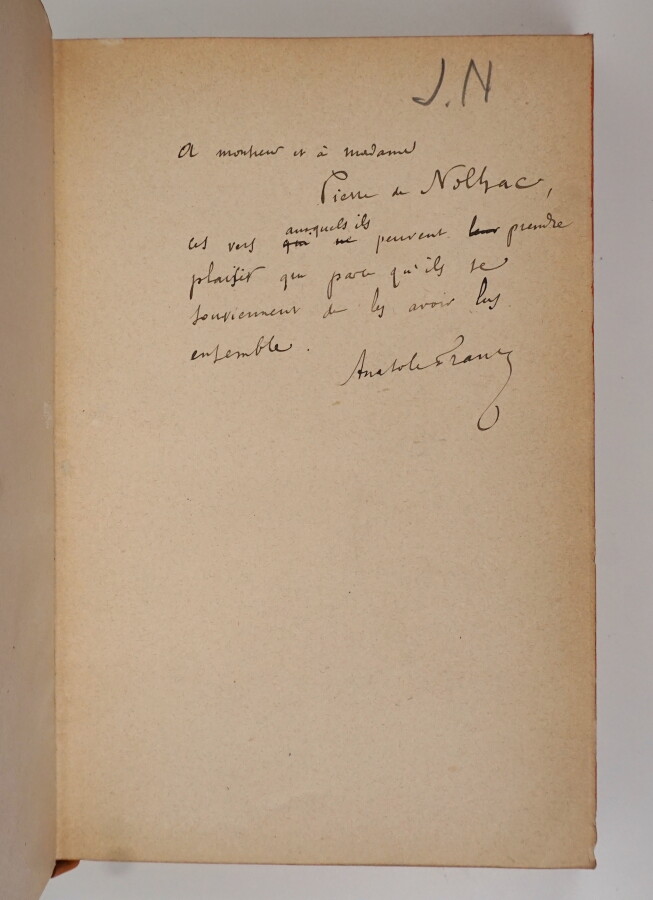 J.N
A monsieur et à madame
Pierre de Nolhac,
ces vers auxquels ils qui ne peuvent leur prendre
plaisir que parce qu'ils se
souviennent de les avoir lus
ensemble.
Anatole France